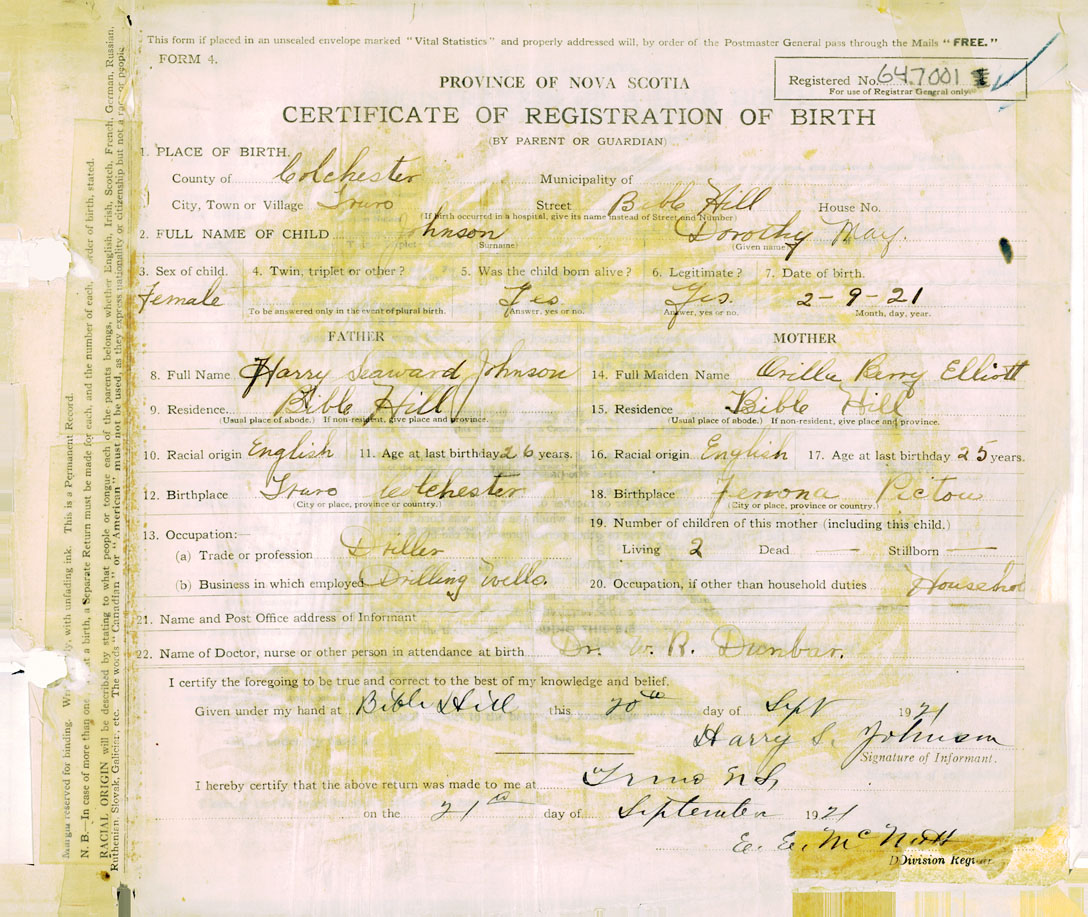 This form if placed in an unsealed envelope marked "Vital Statistics" and properly addressed will, by order of the Postmaster General pass through the Mails "FREE."
FORM 4.
Registered No. 647001
For use of Registrar General only.
PROVINCE OF NOVA SCOTIA
CERTIFICATE OF REGISTRATION OF BIRTH
(BY PARENT OR GUARDIAN)
1. PLACE OF BIRTH.
County of Colchester Municipality of
City, Town or Village Truro Street Bible Hill House No.
(If birth occurred in a hospital, give its name instead of Street and Number)
2. FULL NAME OF CHILD Johnson Dorothy May.
(Surname) (Given name)
3. Sex of child. 4. Twin, triplet or other? 5. Was the child born alive? 6. Legitimate? 7. Date of birth.
Female Yes Yes. 2-9-21
To be answered only in the event of plural birth. Answer, yes or no. Answer, yes or no. Month, day, year.
FATHER MOTHER
8. Full Name Harry Seaward Johnson 14. Full Maiden Name Orilla Berry Elliott
9. Residence Bible Hill 15. Residence Bible Hill
(Usual place of abode.) If non-resident, give place and province. (Usual place of abode.) If non-resident, give place and province.
10. Racial origin English 11. Age at last birthday 26 years. 16. Racial origin English 17. Age at last birthday 25 years.
12. Birthplace Truro Colchester 18. Birthplace Pictou
(City or place, province or country.) (City or place, province or country.)
19. Number of children of this mother (including this child.)
13. Occupation:—
(a) Trade or profession Driller Living 2 Dead — Stillborn —
(b) Business in which employed Drilling Wells. 20. Occupation, if other than household duties Household
21. Name and Post Office address of Informant
22. Name of Doctor, nurse or other person in attendance at birth Dr. W. R. Dunbar.
I certify the foregoing to be true and correct to the best of my knowledge and belief.
Given under my hand at Bible Hill this 20th day of Sept 1921
Harry S. Johnson
Signature of Informant.
I hereby certify that the above return was made to me at Truro N.S.
on the 21st day of September 1921
E. E. McNutt
Division Regis
Margin reserved for binding. with unfading ink. This is a Permanent Record.
N. B.—In case of more than one at a birth, a Separate Return must be made for each, and the number of each, order of birth, stated.
RACIAL ORIGIN will be described by stating to what people or tongue each of the parents belongs, whether English, Irish, Scotch, French, German, Russian,
Ruthenian, Slovak, Galician, etc. The words "Canadian" or "American" must not be used, as they express nationality or citizenship but not a race or people.